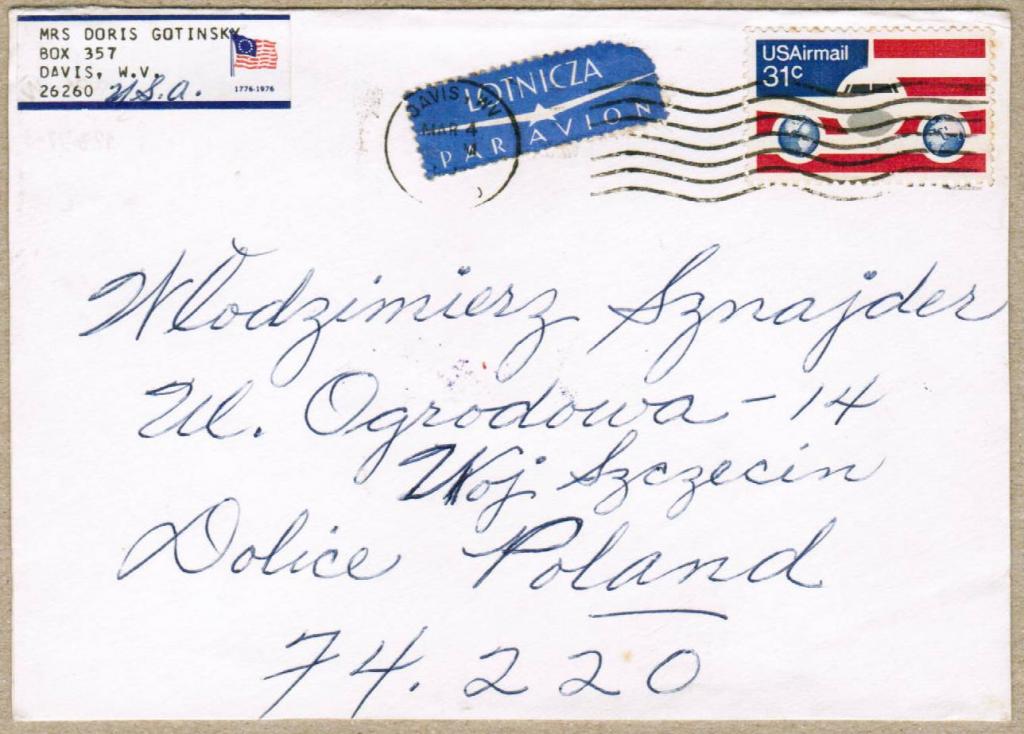 MRS DORIS GOTINSKY
BOX 357
DAVIS, W.V.
26260 U.S.A.
1776-1976
LOTNICZA
PAR AVION
DAVIS, WV
MAR 4
USAirmail
31c
Wlodzimierz Sznajder
Ul. Ogrodowa - 14
Woj Szczecin
Dolice Poland
74.220